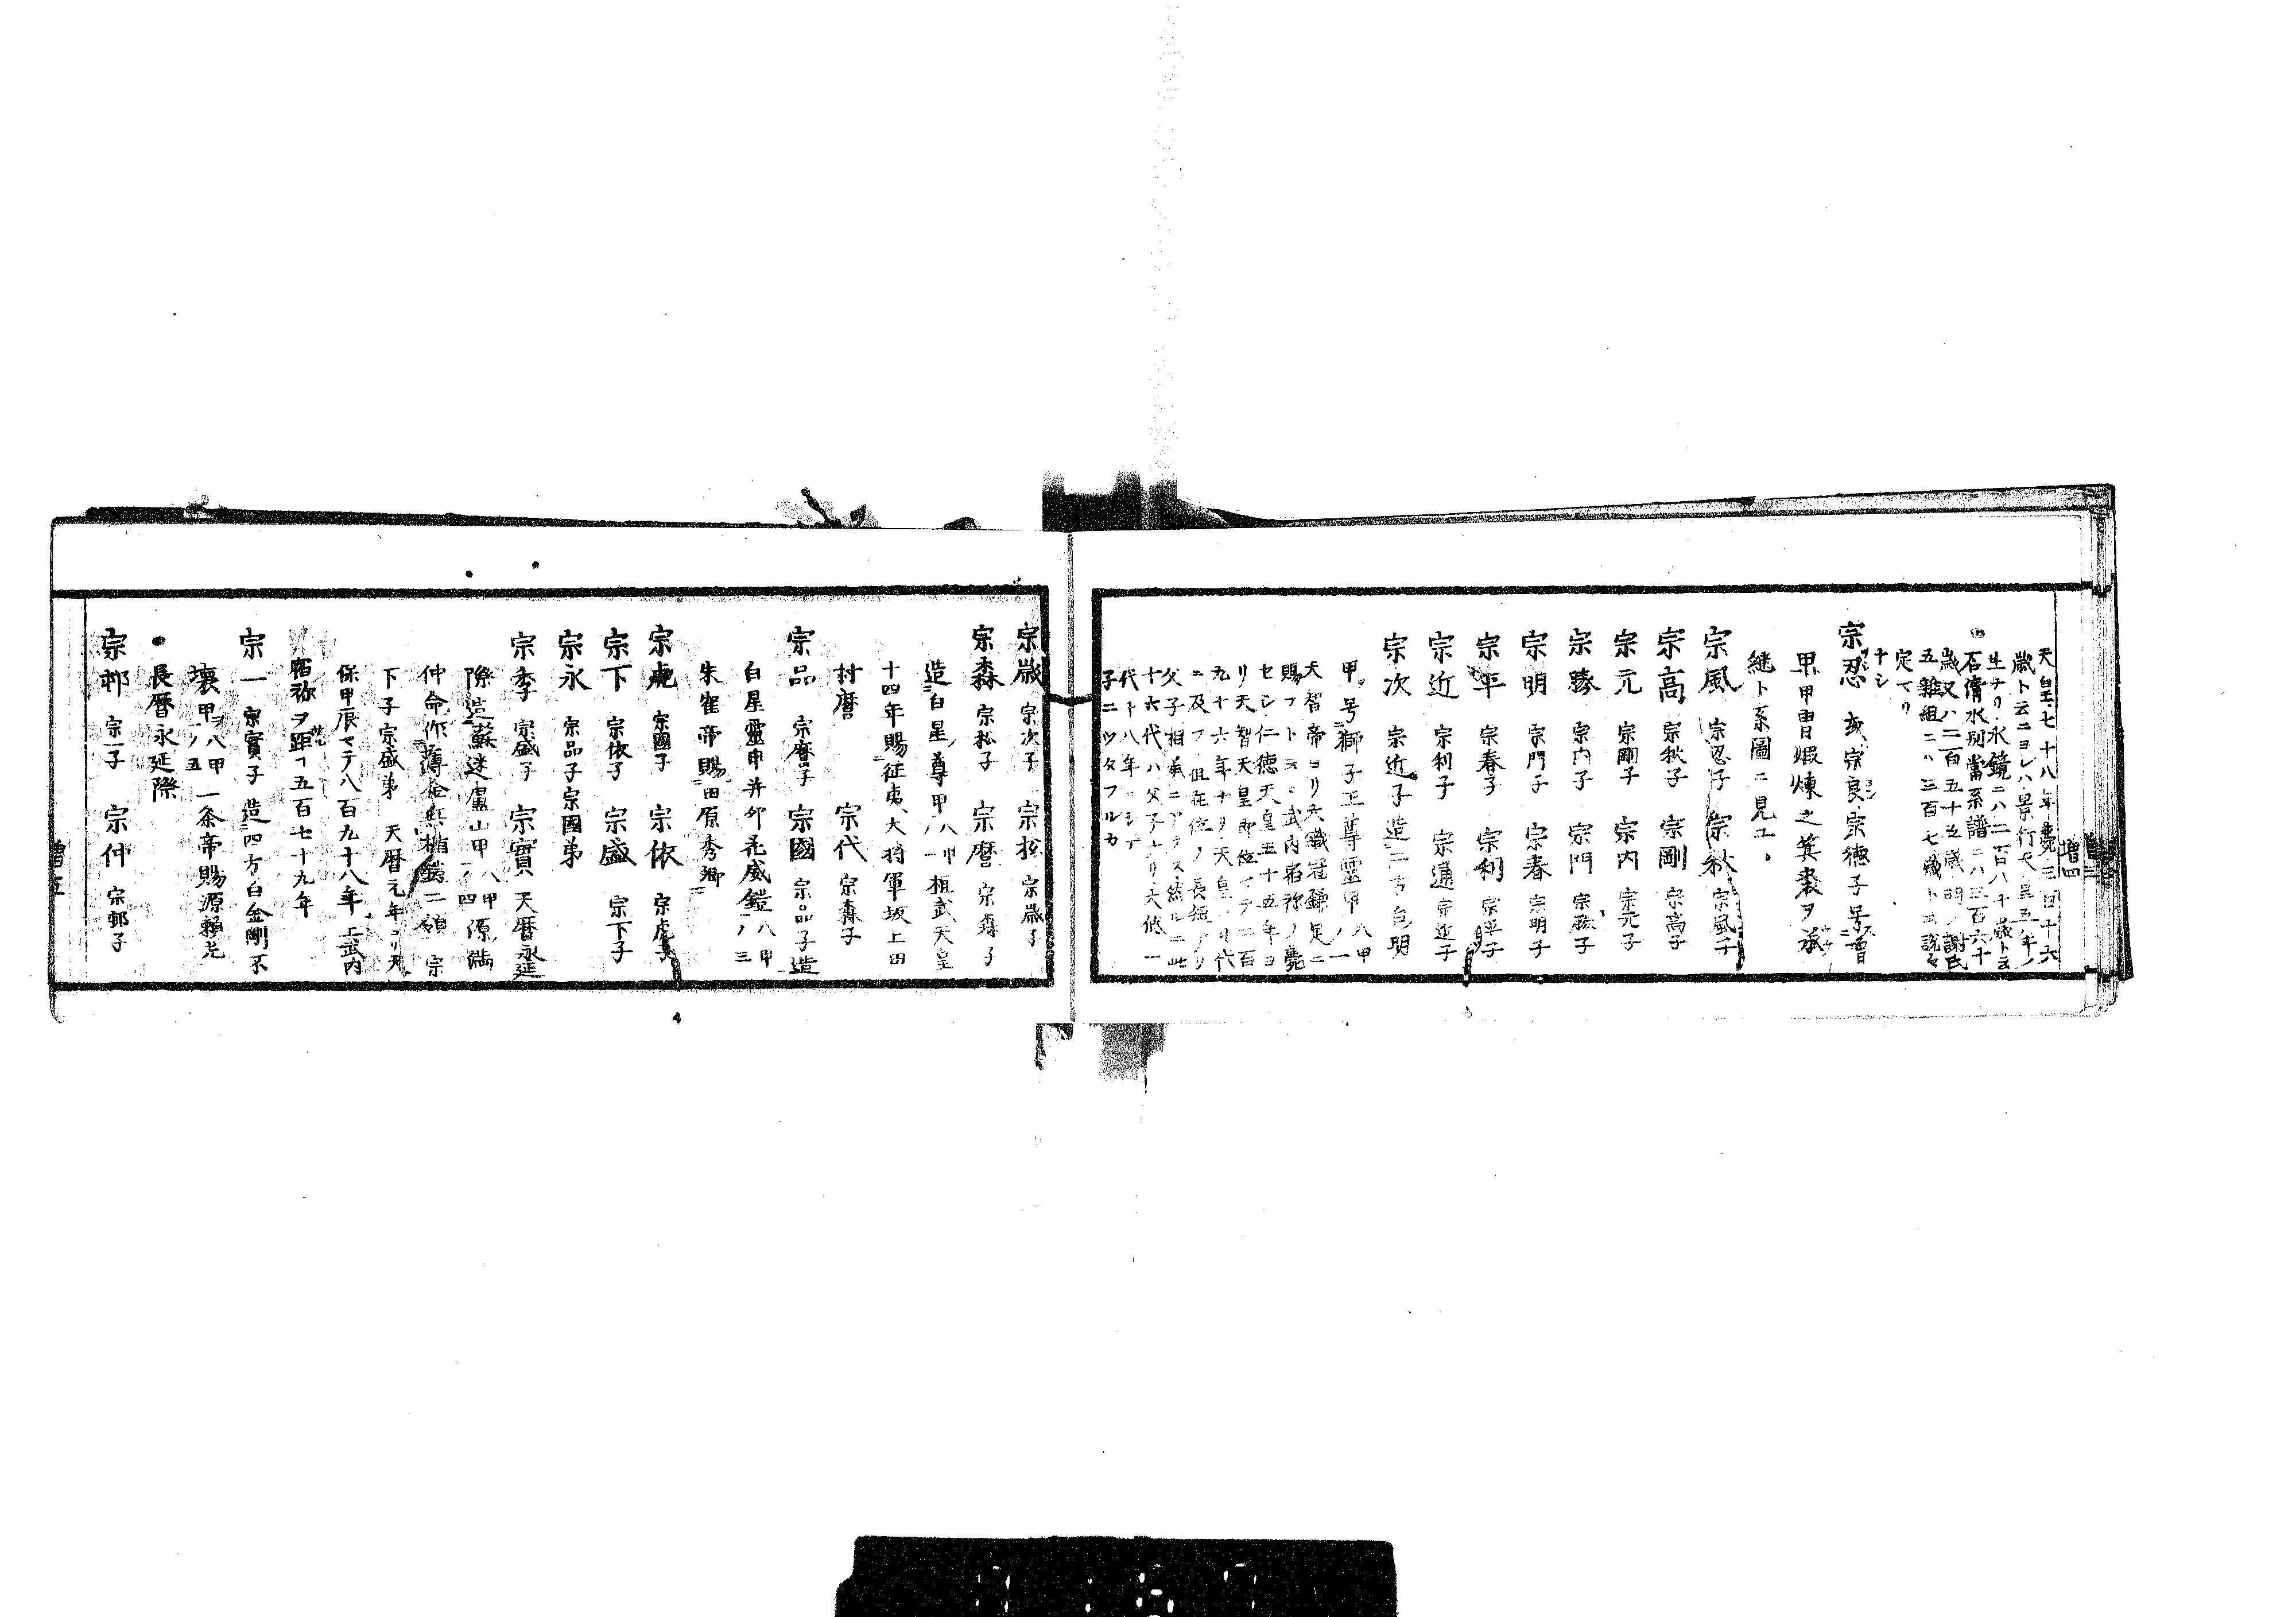 天皇七十八年薨三百十六
歳ト云ニヨレハ景行天皇五年ノ
生ナリ水鏡ニハ二百八十歳ト云
石清水別當系譜ニハ三百六十
歳又ハ二百五十五歳明ノ謝氏
五雜組ニハ三百七歳ト云説々
定マリ
ナシ
宗忍 亥宗良宗徳子号
甲冑煆煉之箕裘ヲ承
継ト系圖ニ見ユ
宗風 宗忍子 宗秋 宗風子
宗高 宗秋子 宗剛 宗高子
宗元 宗剛子 宗内 宗元子
宗勝 宗内子 宗門 宗勝子
宗明 宗門子 宗春 宗明子
宗平 宗春子 宗利 宗平子
宗近 宗利子 宗通 宗近子
宗次 宗近子 造二方白明
甲号獅子王尊靈甲 八甲ノ一
天智帝ヨリ大織冠鎌足ニ
賜フト云 武内宿祢ノ薨
セシ仁徳天皇五十五年ヨ
リ天智天皇即位マテ二百
九十六年ナリ天皇ハ廿代
ニ及フ但在位ノ長短アリ
父子相兼ニアラス然ルニ此
十六代ハ父子ナリ大低一
代十八年ニシテ
子ニツタフルカ
宗歳 宗次子 宗松 宗歳子
宗森 宗松子 宗麿 宗森子
造白星尊甲 八甲ノ一 桓武天皇
十四年賜征夷大将軍坂上田
村麿 宗代 宗森子
宗品 宗麿子 宗國 宗品子造
白星靈甲并卯花威鎧 八甲ノ三
朱雀帝賜田原秀郷
宗虎 宗國子 宗依 宗虎子
宗下 宗依子 宗盛 宗下子
宗永 宗品子宗國弟
宗季 宗盛子 宗實 天暦永延
際造蘇迷盧山甲 八甲ノ四 源満
仲命作薄金無楯鎧二領 宗
下子宗盛弟 天暦元年ヨリ天
保甲辰マテ八百九十八年上武内
宿祢ヲ距ヿ五百七十九年
宗一 宗實子 造四方白金剛不
壞甲 八甲ノ五 一条帝賜源頼光
長暦永延際
宗邦 宗一子 宗仲 宗邦子
増四
増五